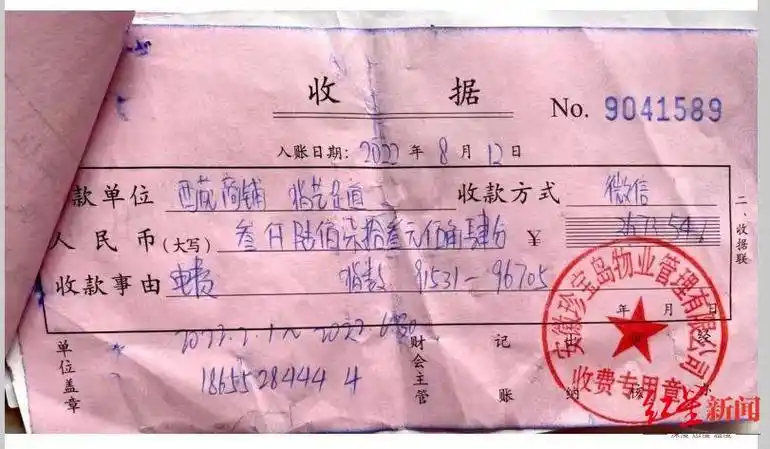 收 据
No. 9041589
入账日期: 2022 年 8 月 12 日
款单位 西苑商铺 收款方式 微信
人民币(大写) 叁仟陆佰柒拾叁元伍角肆分 ¥ 3673.54
收款事由 电费 91531-96705
年 月 日
二、收据联
单位盖章
财会主管
记账
安徽珍宝岛物业管理有限公司
收费专用章
红星新闻